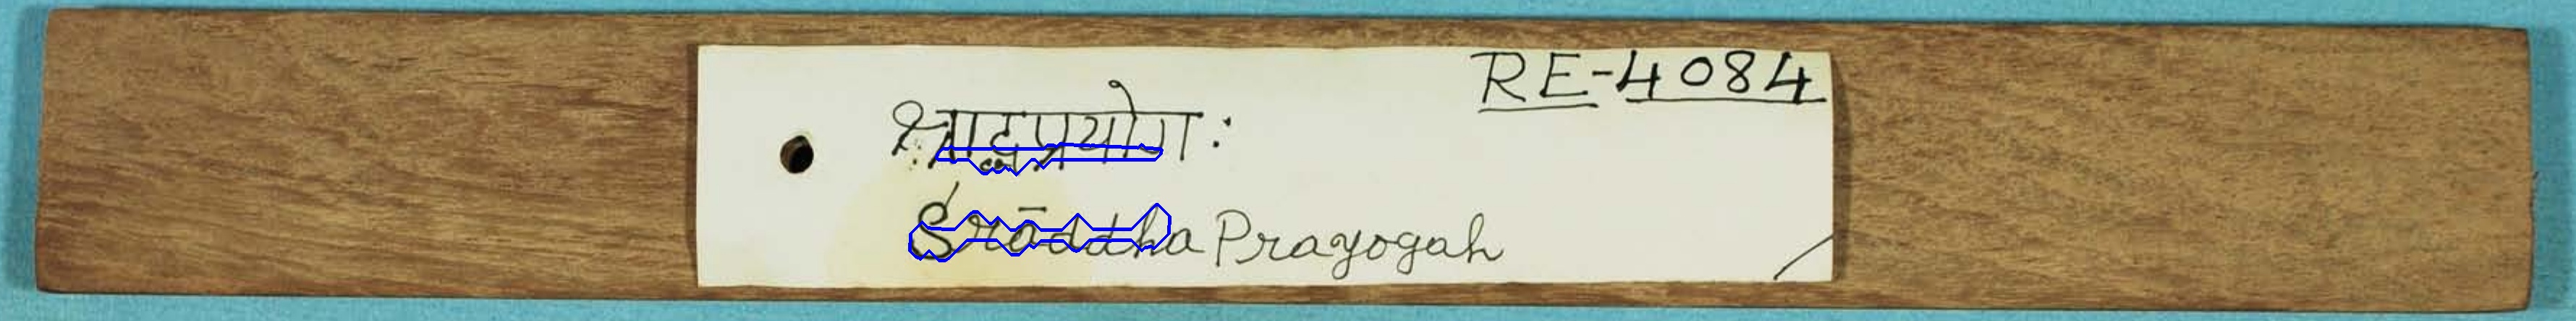 RE-4084
श्राद्धप्रयोगः
Śrāddha Prayogah